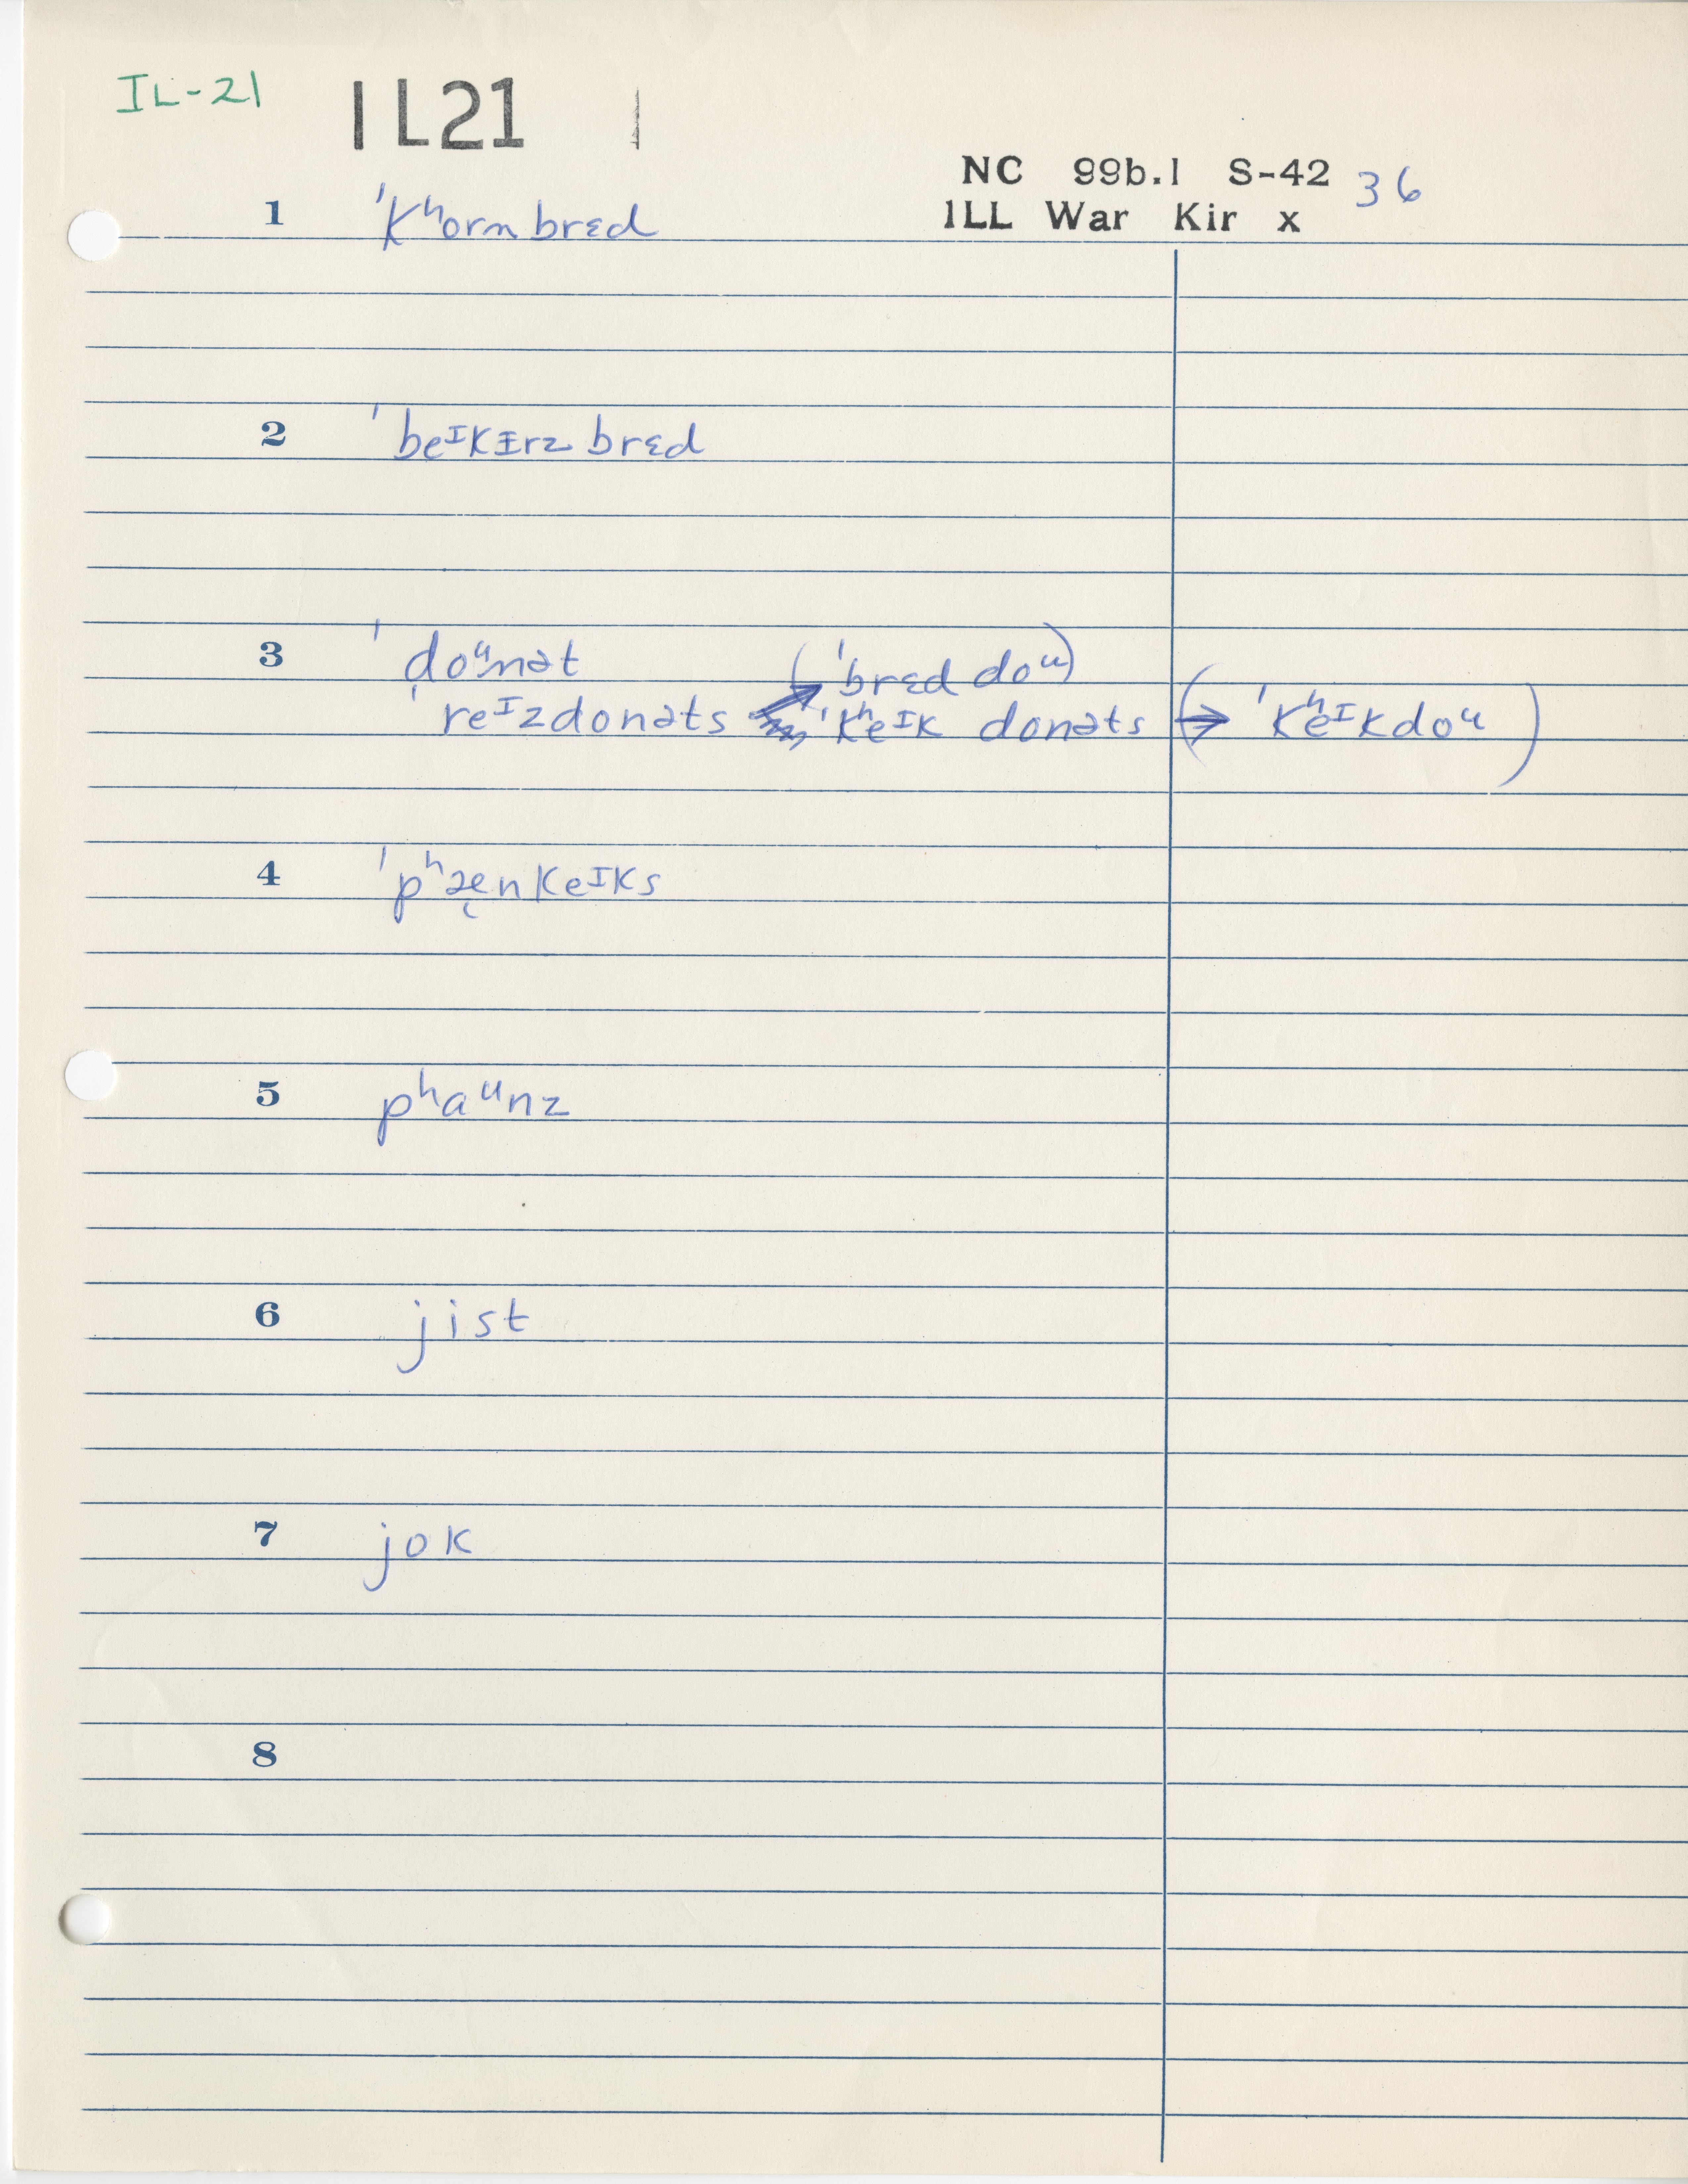 IL-21 IL21 1
NC 99b.1 S-42 36
ILL War Kir x
1 ˈkʰorn brɛd
2 ˈbeᶦkɪrz brɛd
3 ˈdoᵘnət (ˈbrɛd doᵘ)
ˈreᶦzdonəts → ˈkʰeᶦk donəts (→ ˈkʰeᶦkdoᵘ)
4 ˈpʰæ̨nkeᶦks
5 pʰaᵘnz
6 jist
7 jok
8